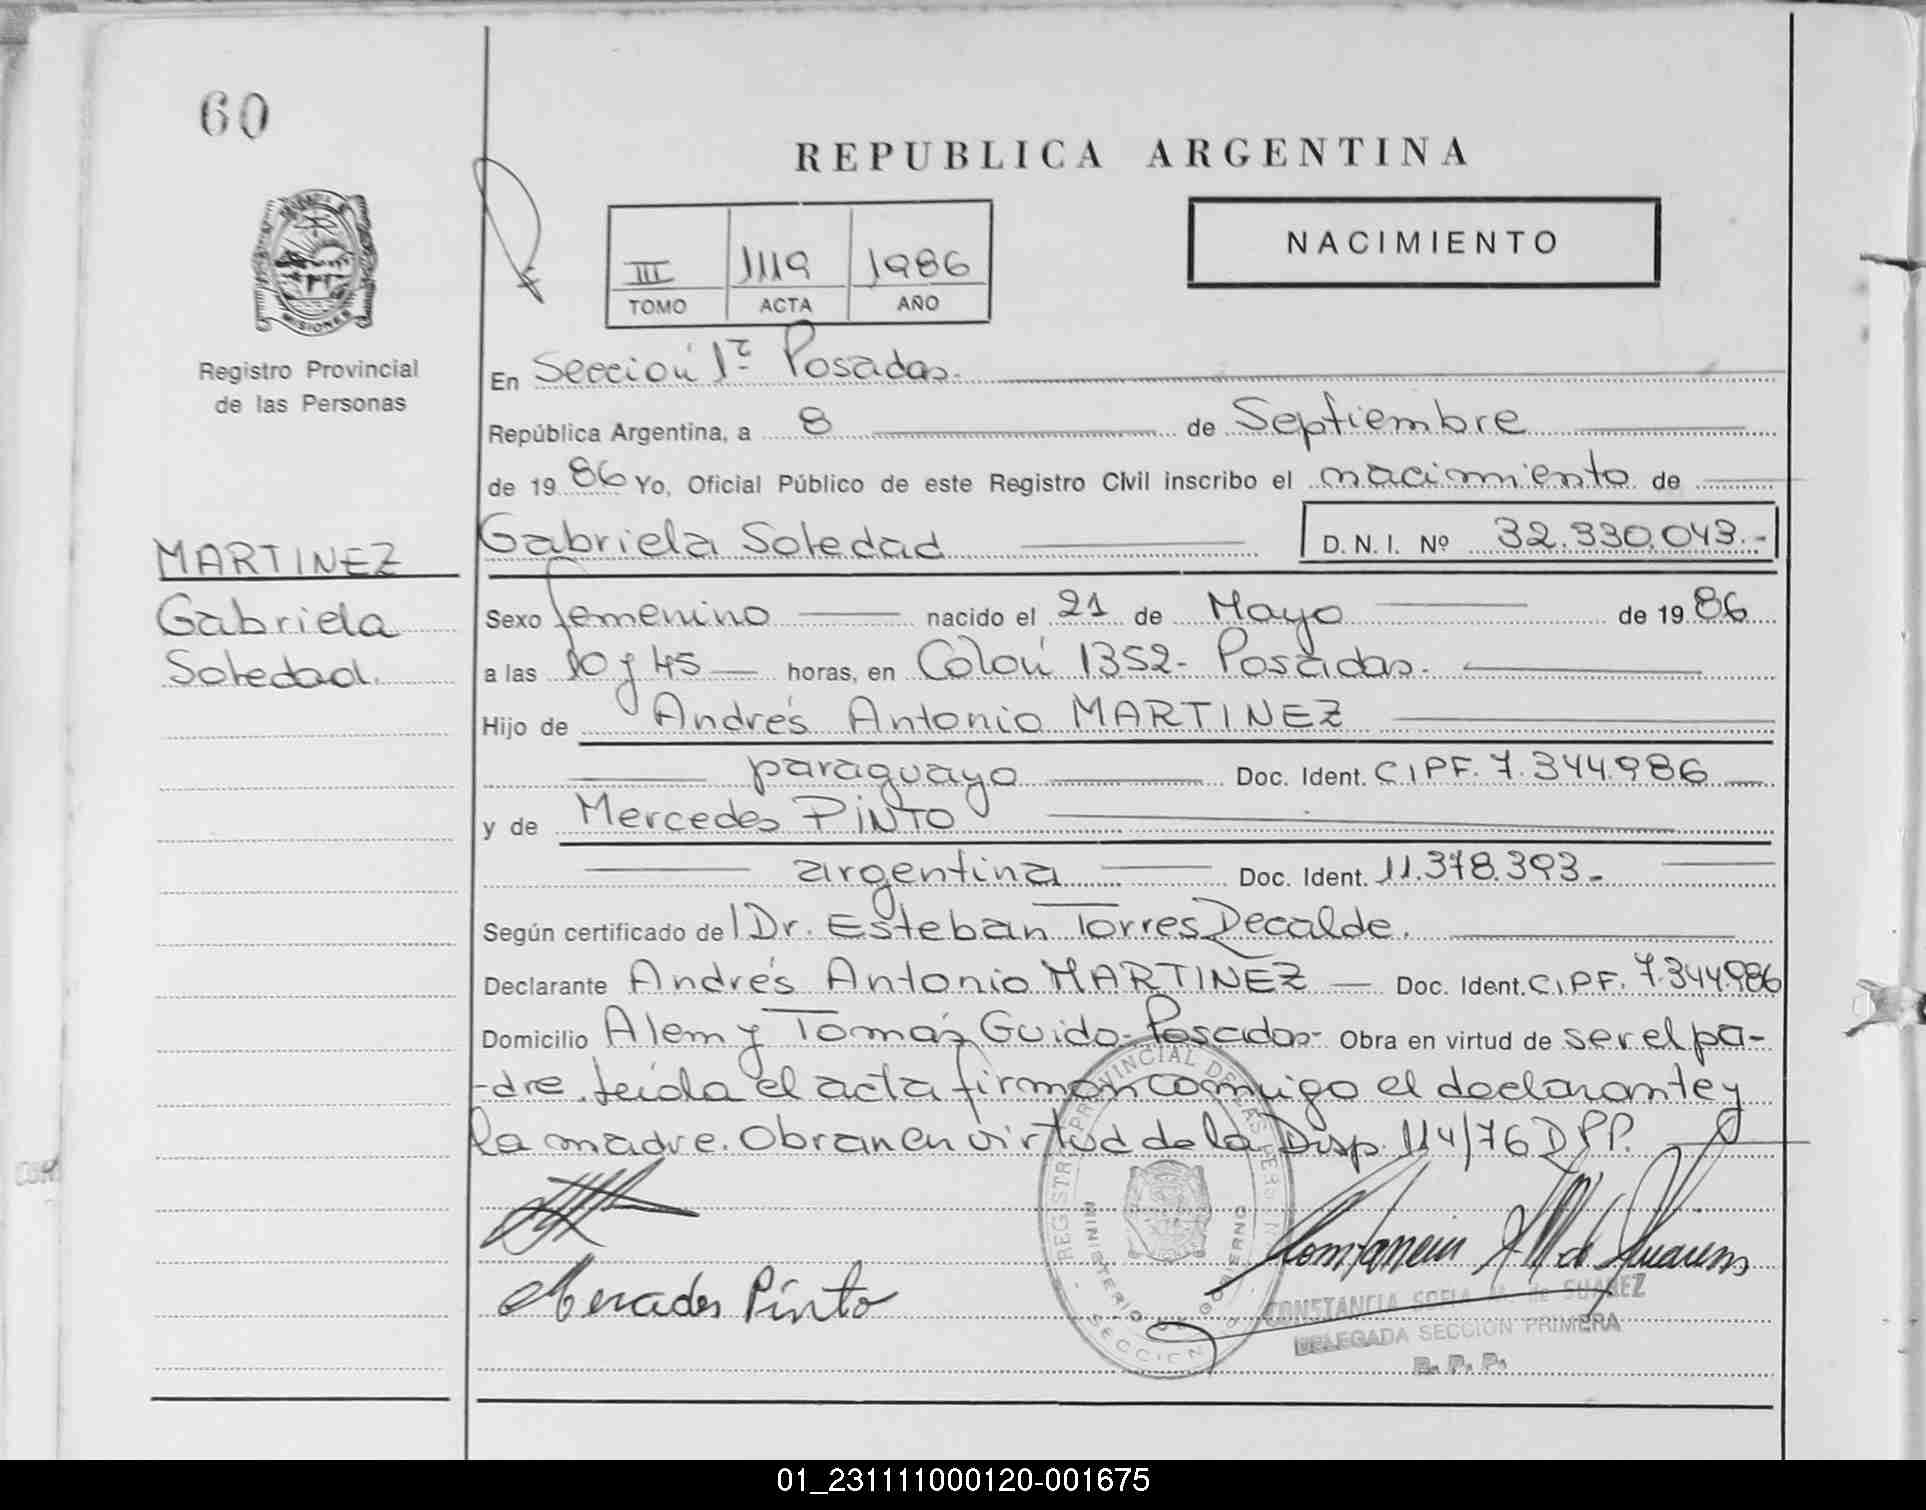 60
REPUBLICA ARGENTINA
NACIMIENTO
III 1119 1986
TOMO ACTA AÑO
MISIONES
Registro Provincial
de las Personas
En Sección 1ª Posadas.
República Argentina, a 8 de Septiembre
de 1986 Yo, Oficial Público de este Registro Civil inscribo el nacimiento de
Gabriela Soledad D.N.I. Nº 32.330.043.-
MARTINEZ
Gabriela
Soledad.
Sexo femenino nacido el 21 de Mayo de 1986
a las 10 y 45 horas, en Colón 1352- Posadas.
Hijo de Andrés Antonio MARTINEZ
paraguayo Doc. Ident. C.I.P.F. 7.344.986
y de Mercedes PiNTO
argentina Doc. Ident. 11.378.393.-
Según certificado del Dr. Esteban Torres Decalde.
Declarante Andrés Antonio MARTINEZ Doc. Ident. C.I.P.F. 7.344.986
Domicilio Alem y Tomás Guido- Posadas- Obra en virtud de ser el pa-
-dre. Leída el acta firman conmigo el declarante y
la madre. Obran en virtud de la Disp. 114/76 D.P.P.
REGISTRO PROVINCIAL DE LAS PERSONAS
MINISTERIO DE GOBIERNO
SECCION
Mercedes Pinto
CONSTANCIA SOFIA M. de SUAREZ
DELEGADA SECCION PRIMERA
R. P. P.
01_231111000120-001675